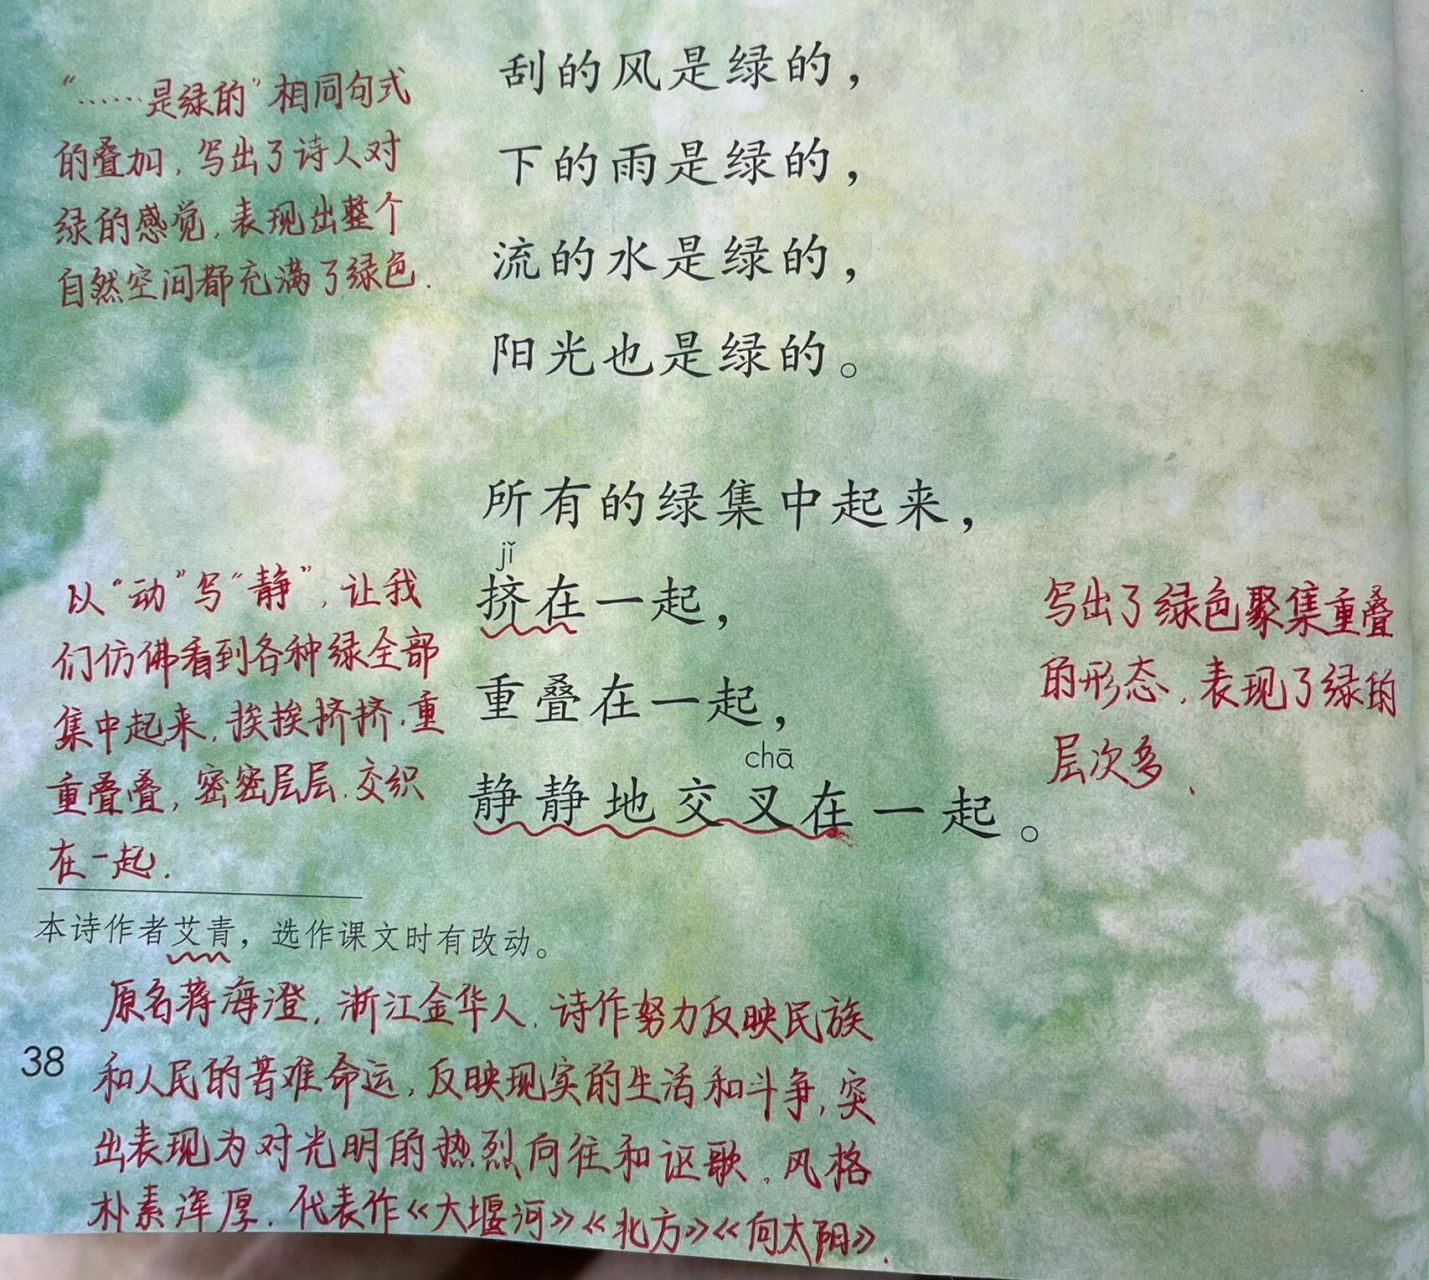 刮的风是绿的，
下的雨是绿的，
流的水是绿的，
阳光也是绿的。
“……是绿的”相同句式
的叠加，写出了诗人对
绿的感觉，表现出整个
自然空间都充满了绿色.
所有的绿集中起来，
jǐ
挤在一起，
重叠在一起，
chā
静静地交叉在一起。
以“动”写“静”，让我
们仿佛看到各种绿全部
集中起来，挨挨挤挤，重
重叠叠，密密层层，交织
在一起.
写出了绿色聚集重叠
的形态，表现了绿的
层次多、
本诗作者艾青，选作课文时有改动。
原名蒋海澄，浙江金华人，诗作努力反映民族
38
和人民的苦难命运，反映现实的生活和斗争，突
出表现为对光明的热烈向往和讴歌，风格
朴素浑厚，代表作《大堰河》《北方》《向太阳》.